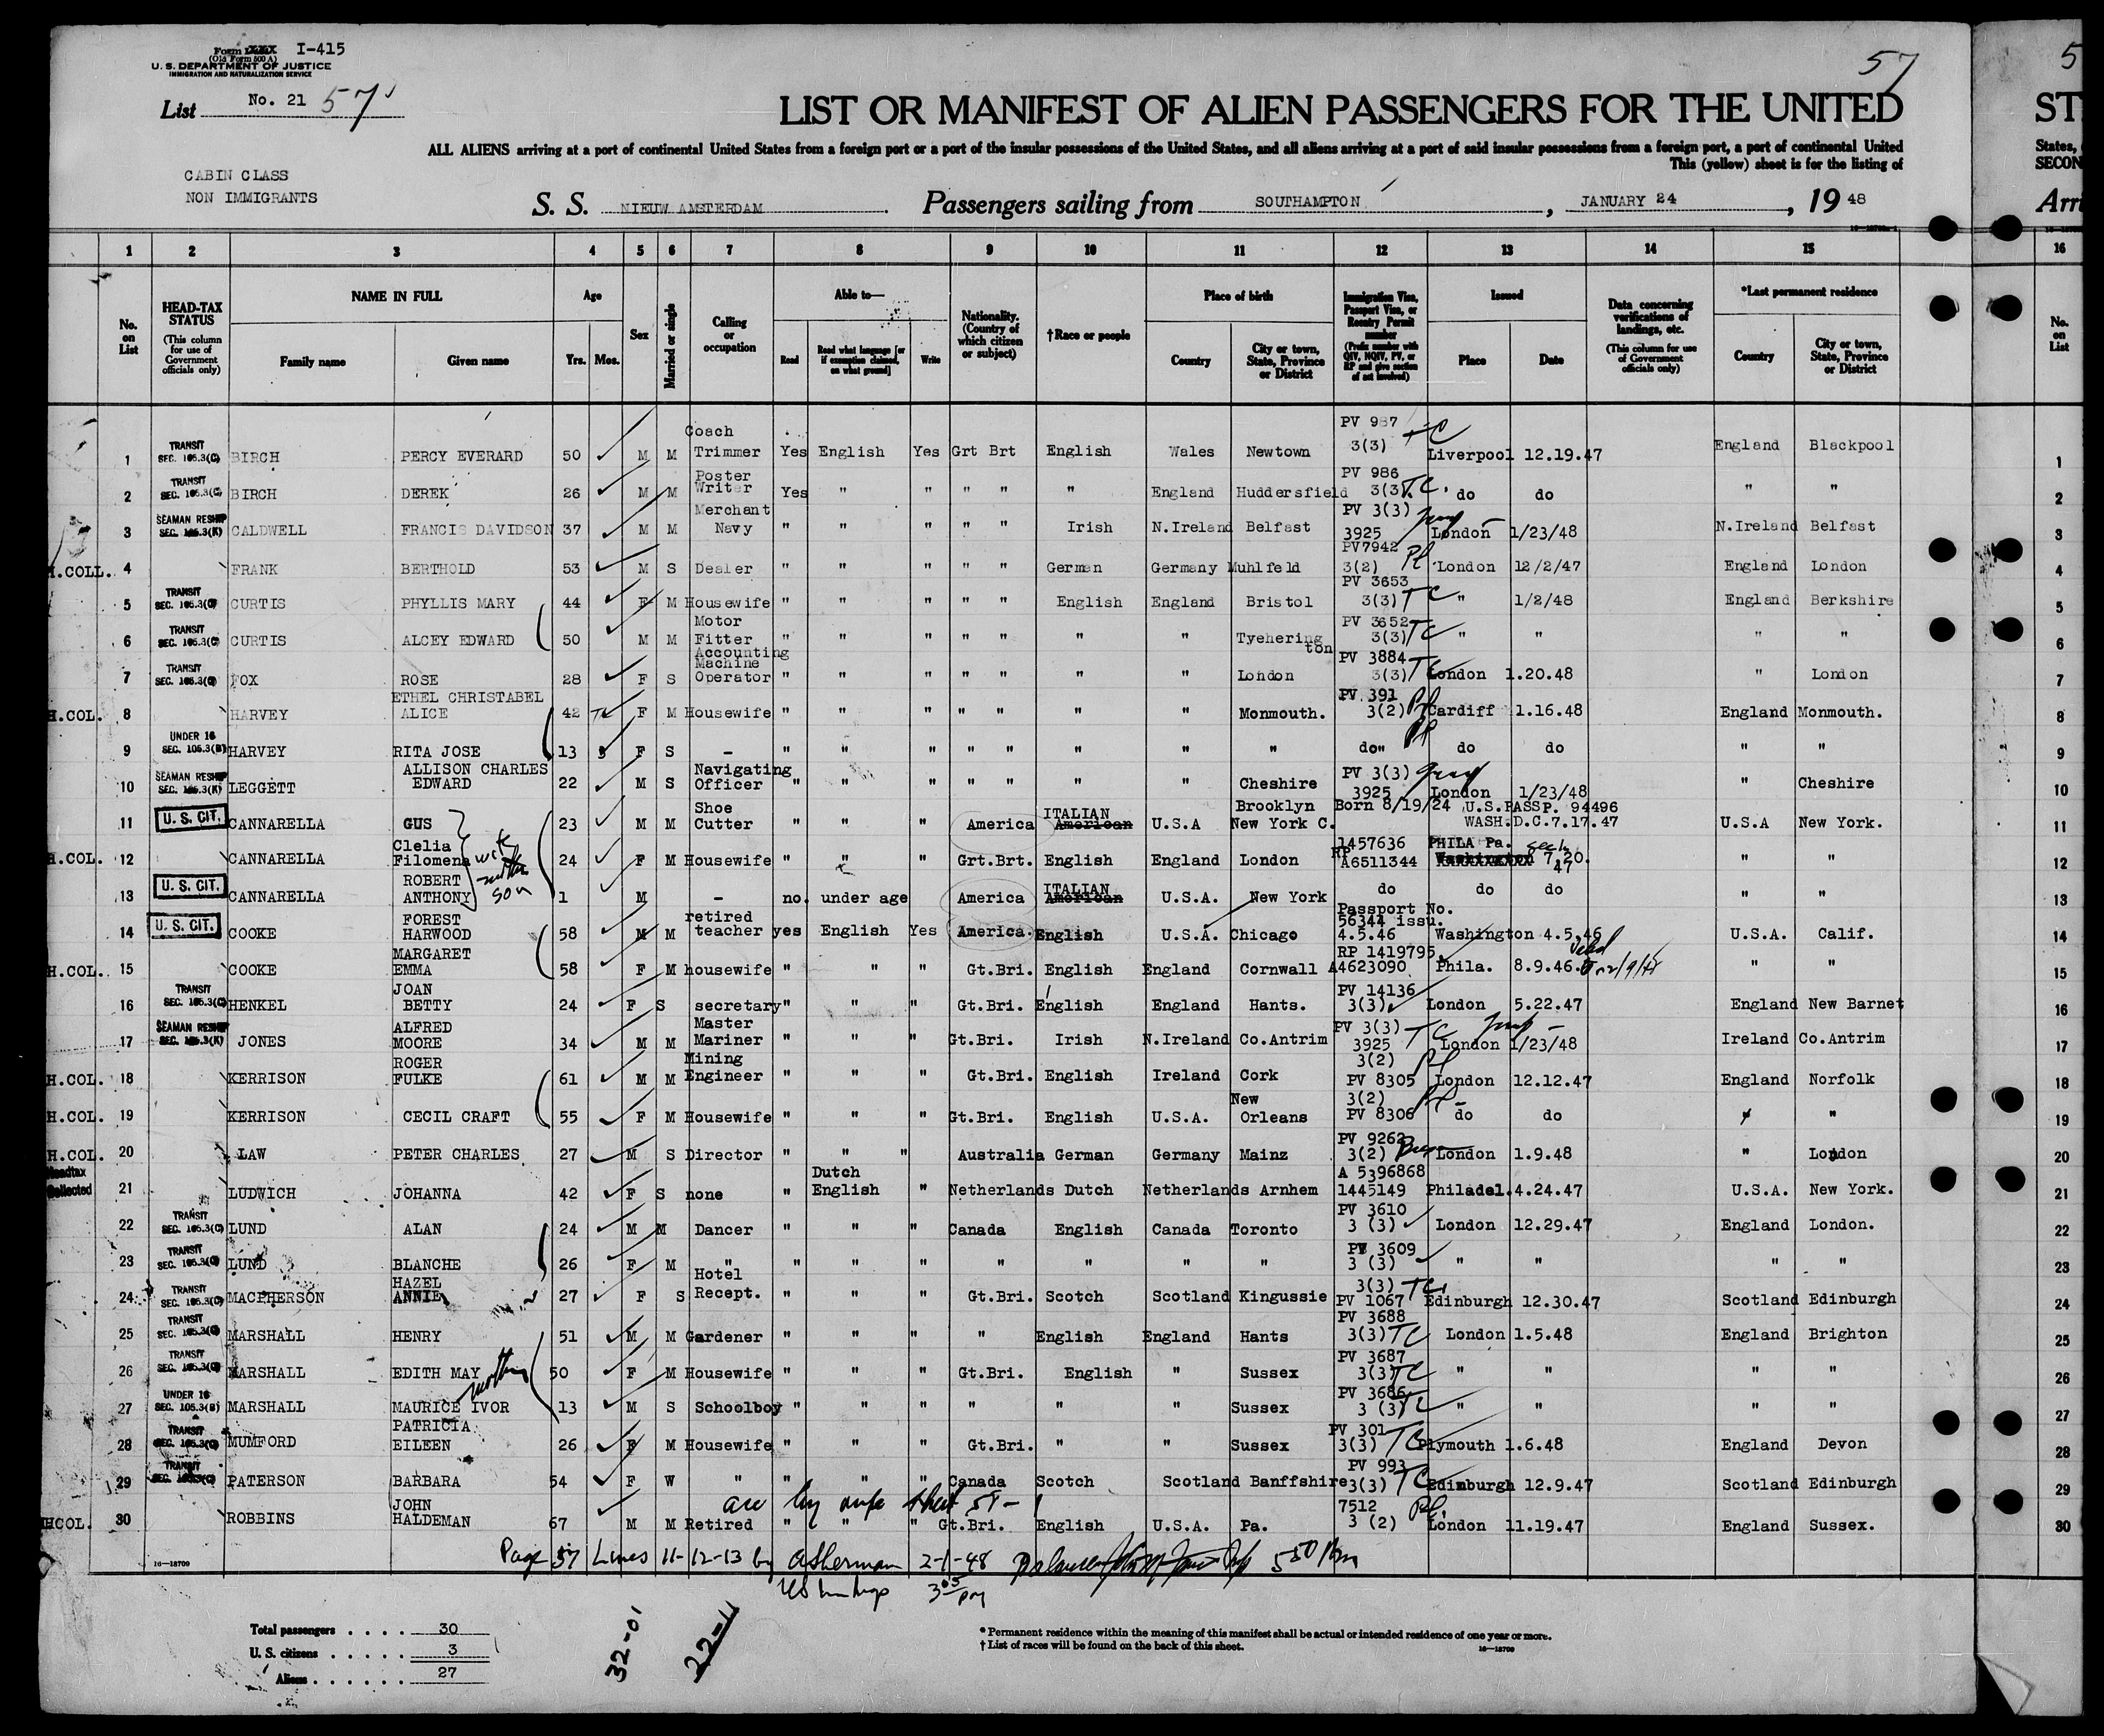 Form XXX I-415
(Old Form 500 A)
U. S. DEPARTMENT OF JUSTICE
IMMIGRATION AND NATURALIZATION SERVICE
57
5
List No. 21 57
LIST OR MANIFEST OF ALIEN PASSENGERS FOR THE UNITED
ST
ALL ALIENS arriving at a port of continental United States from a foreign port or a port of the insular possessions of the United States, and all aliens arriving at a port of said insular possessions from a foreign port, a port of continental United
States,
This (yellow) sheet is for the listing of
SECON
CABIN CLASS
NON IMMIGRANTS
S. S. NIEUW AMSTERDAM Passengers sailing from SOUTHAMPTON, JANUARY 24, 19 48
Arri
1 2 3 4 5 6 7 8 9 10 11 12 13 14 15 16
No. on List
HEAD-TAX STATUS (This column for use of Government officials only)
NAME IN FULL Family name Given name
Age Yrs. Mos.
Sex
Married or single
Calling or occupation
Able to— Read Read what language [or if exemption claimed, on what ground] Write
Nationality. (Country of which citizen or subject)
†Race or people
Place of birth Country City or town, State, Province or District
Immigration Visa, Passport Visa, or Reentry Permit number (Prefix number with QIV, NQIV, PV, or RP and give section of act involved)
Issued Place Date
Data concerning verifications of landings, etc. (This column for use of Government officials only)
*Last permanent residence Country City or town, State, Province or District
No. on List
1 TRANSIT SEC. 105.3(C) BIRCH PERCY EVERARD 50 M M Coach Trimmer Yes English Yes Grt Brt English Wales Newtown PV 987 3(3) TC Liverpool 12.19.47 England Blackpool 1
2 TRANSIT SEC. 105.3(C) BIRCH DEREK 26 M M Poster Writer Yes " " " " " England Huddersfield PV 986 3(3) TC. do do " " 2
3 SEAMAN RESHIP SEC. 105.3(K) CALDWELL FRANCIS DAVIDSON 37 M M Merchant Navy " " " " " Irish N.Ireland Belfast PV 3(3) 3925 London 1/23/48 N.Ireland Belfast 3
H.COLL. 4 FRANK BERTHOLD 53 M S Dealer " " " " " German Germany Muhlfeld PV7942 3(2) Pl London 12/2/47 England London 4
5 TRANSIT SEC. 105.3(C) CURTIS PHYLLIS MARY 44 F M Housewife " " " " " English England Bristol PV 3653 3(3) TC " 1/2/48 England Berkshire 5
6 TRANSIT SEC. 105.3(C) CURTIS ALCEY EDWARD 50 M M Motor Fitter " " " " " " " Tyeherington PV 3652 3(3) TC " " " " 6
7 TRANSIT SEC. 105.3(C) FOX ROSE 28 F S Accounting Machine Operator " " " " " " " London PV 3884 3(3) TC London 1.20.48 " London 7
H.COL. 8 HARVEY ETHEL CHRISTABEL ALICE 42 F M Housewife " " " " " " " Monmouth. PV 391 3(2) Pl Cardiff 1.16.48 England Monmouth. 8
9 UNDER 16 SEC. 105.3(B) HARVEY RITA JOSE 13 F S - " " " " " " " " do" Pl do do " " 9
10 SEAMAN RESHIP SEC. 105.3(K) LEGGETT ALLISON CHARLES EDWARD 22 M S Navigating Officer " " " " " " " Cheshire PV 3(3) 3925 London 1/23/48 " Cheshire 10
11 U. S. CIT. CANNARELLA GUS 23 M M Shoe Cutter " " " America ITALIAN American U.S.A Brooklyn New York C. Born 8/19/24 U.S.PASSP. 94496 WASH.D.C.7.17.47 U.S.A New York. 11
H.COL. 12 CANNARELLA Clelia Filomena wife 24 F M Housewife " " " Grt.Brt. English England London 1457636 RP A6511344 PHILA Pa. Washington 7.20.47 " " 12
13 U. S. CIT. CANNARELLA ROBERT ANTHONY son 1 M - no. under age America ITALIAN American U.S.A. New York do do do " " 13
14 U. S. CIT. COOKE FOREST HARWOOD 58 M M retired teacher yes English Yes America. English U.S.A. Chicago Passport No. 56344 issu. 4.5.46 Washington 4.5.46 U.S.A. Calif. 14
H.COL. 15 COOKE MARGARET EMMA 58 F M housewife " " " Gt.Bri. English England Cornwall RP 1419795 A4623090 Phila. 8.9.46. " " 15
16 TRANSIT SEC. 105.3(C) HENKEL JOAN BETTY 24 F S secretary " " " Gt.Bri. English England Hants. PV 14136 3(3) London 5.22.47 England New Barnet 16
17 SEAMAN RESHIP SEC. 105.3(K) JONES ALFRED MOORE 34 M M Master Mariner " " " Gt.Bri. Irish N.Ireland Co.Antrim PV 3(3) 3925 TC London 1/23/48 Ireland Co.Antrim 17
H.COL. 18 KERRISON ROGER FULKE 61 M M Mining Engineer " " " Gt.Bri. English Ireland Cork 3(2) PV 8305 Pl London 12.12.47 England Norfolk 18
H.COL. 19 KERRISON CECIL CRAFT 55 F M Housewife " " " Gt.Bri. English U.S.A. New Orleans 3(2) PV 8306 Pl do do " " 19
H.COL. 20 LAW PETER CHARLES 27 M S Director " " " Australia German Germany Mainz PV 9262 3(2) London 1.9.48 " London 20
Headtax Collected 21 LUDWICH JOHANNA 42 F S none " Dutch English " Netherlands Dutch Netherlands Arnhem A 5396868 1445149 Philadel. 4.24.47 U.S.A. New York. 21
22 TRANSIT SEC. 105.3(C) LUND ALAN 24 M M Dancer " " " Canada English Canada Toronto PV 3610 3 (3) London 12.29.47 England London. 22
23 TRANSIT SEC. 105.3(C) LUND BLANCHE 26 F M " " " " " " " " PV 3609 3 (3) " " " " 23
24 TRANSIT SEC. 105.3(C) MACPHERSON HAZEL ANNIE 27 F S Hotel Recept. " " " Gt.Bri. Scotch Scotland Kingussie 3(3) TC PV 1067 Edinburgh 12.30.47 Scotland Edinburgh 24
25 TRANSIT SEC. 105.3(C) MARSHALL HENRY 51 M M Gardener " " " " English England Hants PV 3688 3(3) TC London 1.5.48 England Brighton 25
26 TRANSIT SEC. 105.3(C) MARSHALL EDITH MAY mother 50 F M Housewife " " " Gt.Bri. English " Sussex PV 3687 3(3) TC " " " " 26
27 UNDER 16 SEC. 105.3(B) MARSHALL MAURICE IVOR 13 M S Schoolboy " " " " " " Sussex PV 3686 3 (3) TC " " " " 27
28 TRANSIT SEC. 105.3(C) MUMFORD PATRICIA EILEEN 26 F M Housewife " " " Gt.Bri. " " Sussex PV 301 3(3) TC Plymouth 1.6.48 England Devon 28
29 TRANSIT SEC. 105.3(C) PATERSON BARBARA 54 F W " " " " Canada Scotch Scotland Banffshire PV 993 3(3) TC Edinburgh 12.9.47 Scotland Edinburgh 29
HCOL. 30 ROBBINS JOHN HALDEMAN 67 M M Retired " " " Gt.Bri. English U.S.A. Pa. 7512 3 (2) Pl. London 11.19.47 England Sussex. 30
16—18709
Page 57 Lines 11-12-13 by 2-1-48 5 50 pm
US Imm Insp 3 05 pm
32-01
22-11
Total passengers . . . . 30
U. S. citizens . . . . . 3
Aliens . . . . . . 27
* Permanent residence within the meaning of this manifest shall be actual or intended residence of one year or more.
† List of races will be found on the back of this sheet.
16—18709